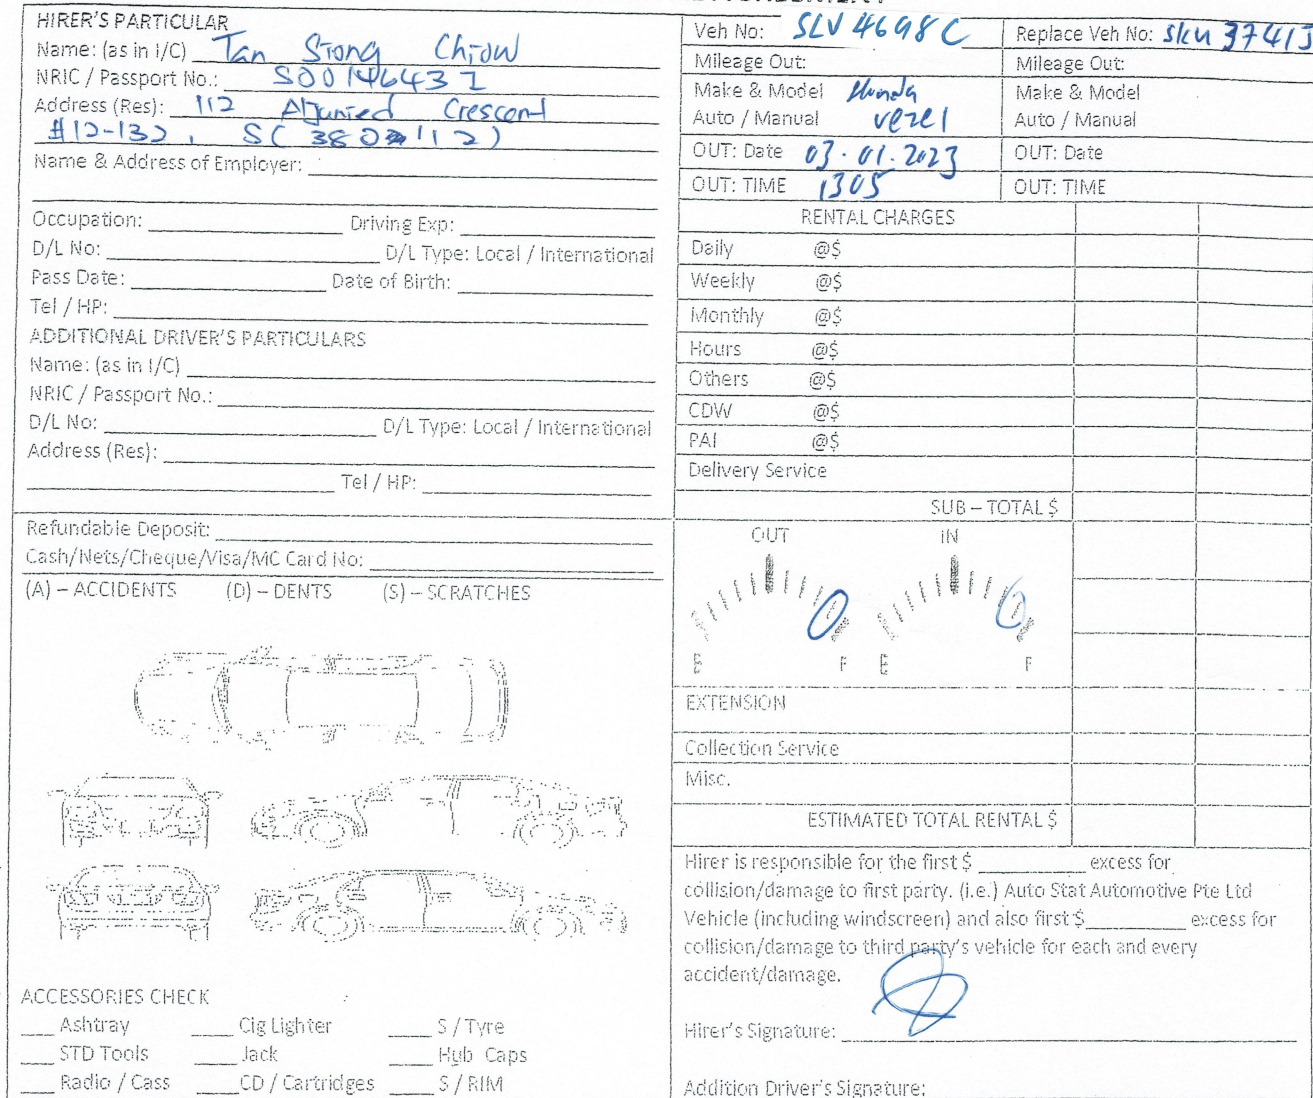 HIRER'S PARTICULAR
Name: (as in I/C) Tan Siong Chiow
NRIC / Passport No.: S0014643Z
Address (Res): 112 Aljunied Crescent
#12-132, S(380112)
Name & Address of Employer:
Occupation: Driving Exp:
D/L No: D/L Type: Local / International
Pass Date: Date of Birth:
Tel / HP:
ADDITIONAL DRIVER'S PARTICULARS
Name: (as in I/C)
NRIC / Passport No.:
D/L No: D/L Type: Local / International
Address (Res):
Tel / HP:
Refundable Deposit:
Cash/Nets/Cheque/Visa/MC Card No:
(A) – ACCIDENTS (D) – DENTS (S) – SCRATCHES
ACCESSORIES CHECK
Ashtray Cig Lighter S / Tyre
STD Tools Jack Hub Caps
Radio / Cass CD / Cartridges S / RIM
Veh No: SLV 4698C Replace Veh No: SKU 3741J
Mileage Out: Mileage Out:
Make & Model Honda Make & Model
Auto / Manual vezel Auto / Manual
OUT: Date 03.01.2023 OUT: Date
OUT: TIME 1305 OUT: TIME
RENTAL CHARGES
Daily @$
Weekly @$
Monthly @$
Hours @$
Others @$
CDW @$
PAI @$
Delivery Service
SUB – TOTAL $
OUT IN
E F E F
EXTENSION
Collection Service
Misc.
ESTIMATED TOTAL RENTAL $
Hirer is responsible for the first $ excess for
collision/damage to first party. (i.e.) Auto Stat Automotive Pte Ltd
Vehicle (including windscreen) and also first $ excess for
collision/damage to third party's vehicle for each and every
accident/damage.
Hirer's Signature:
Addition Driver's Signature: